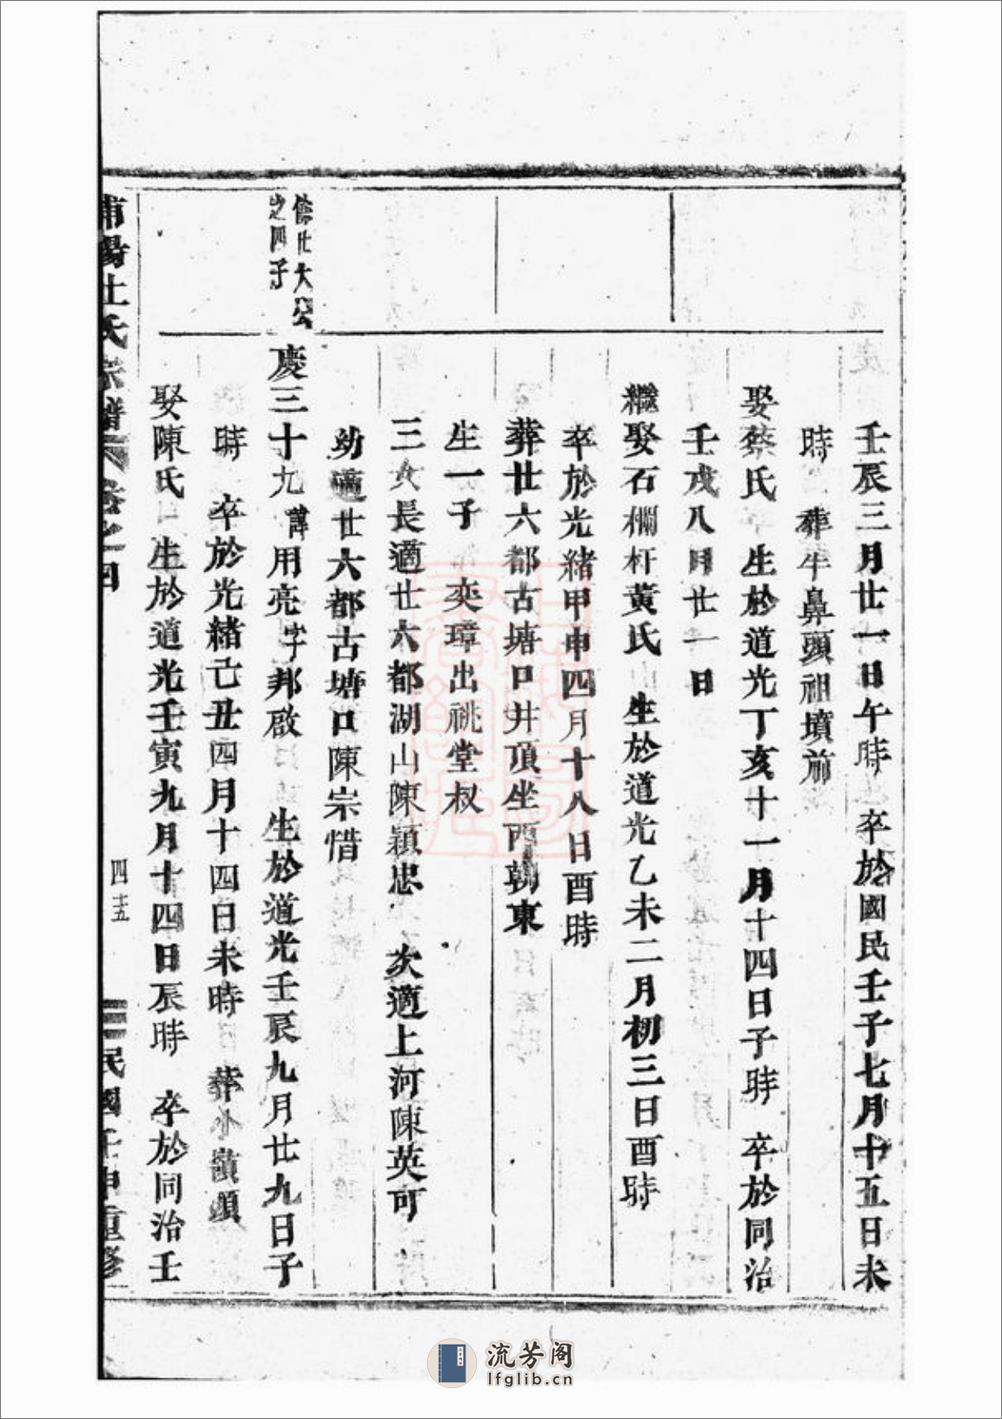 壬辰三月廿一日午時 卒於國民壬子七月十五日未
時 葬牛鼻頭祖墳前
娶蔡氏 生於道光丁亥十一月十四日子時 卒於同治
壬戌八月廿一日
繼娶石欄杆黃氏 生於道光乙未二月初三日酉時
卒於光緒甲申四月十八日酉時
葬廿六都古塘口井頂坐西朝東
生一子 奕璋出祧堂叔
三女長適廿六都湖山陳穎忠 次適上河陳英可
幼適廿六都古塘口陳宗惜
儉廿大公
之四子
慶三十九諱用亮字邦啟 生於道光壬辰九月廿九日子
時 卒於光緒己丑四月十四日未時 葬小嶺頭
娶陳氏 生於道光壬寅九月十四日辰時 卒於同治壬
氏宗譜 卷之四 四五 民國壬申重修
流芳阁
lfglib.cn